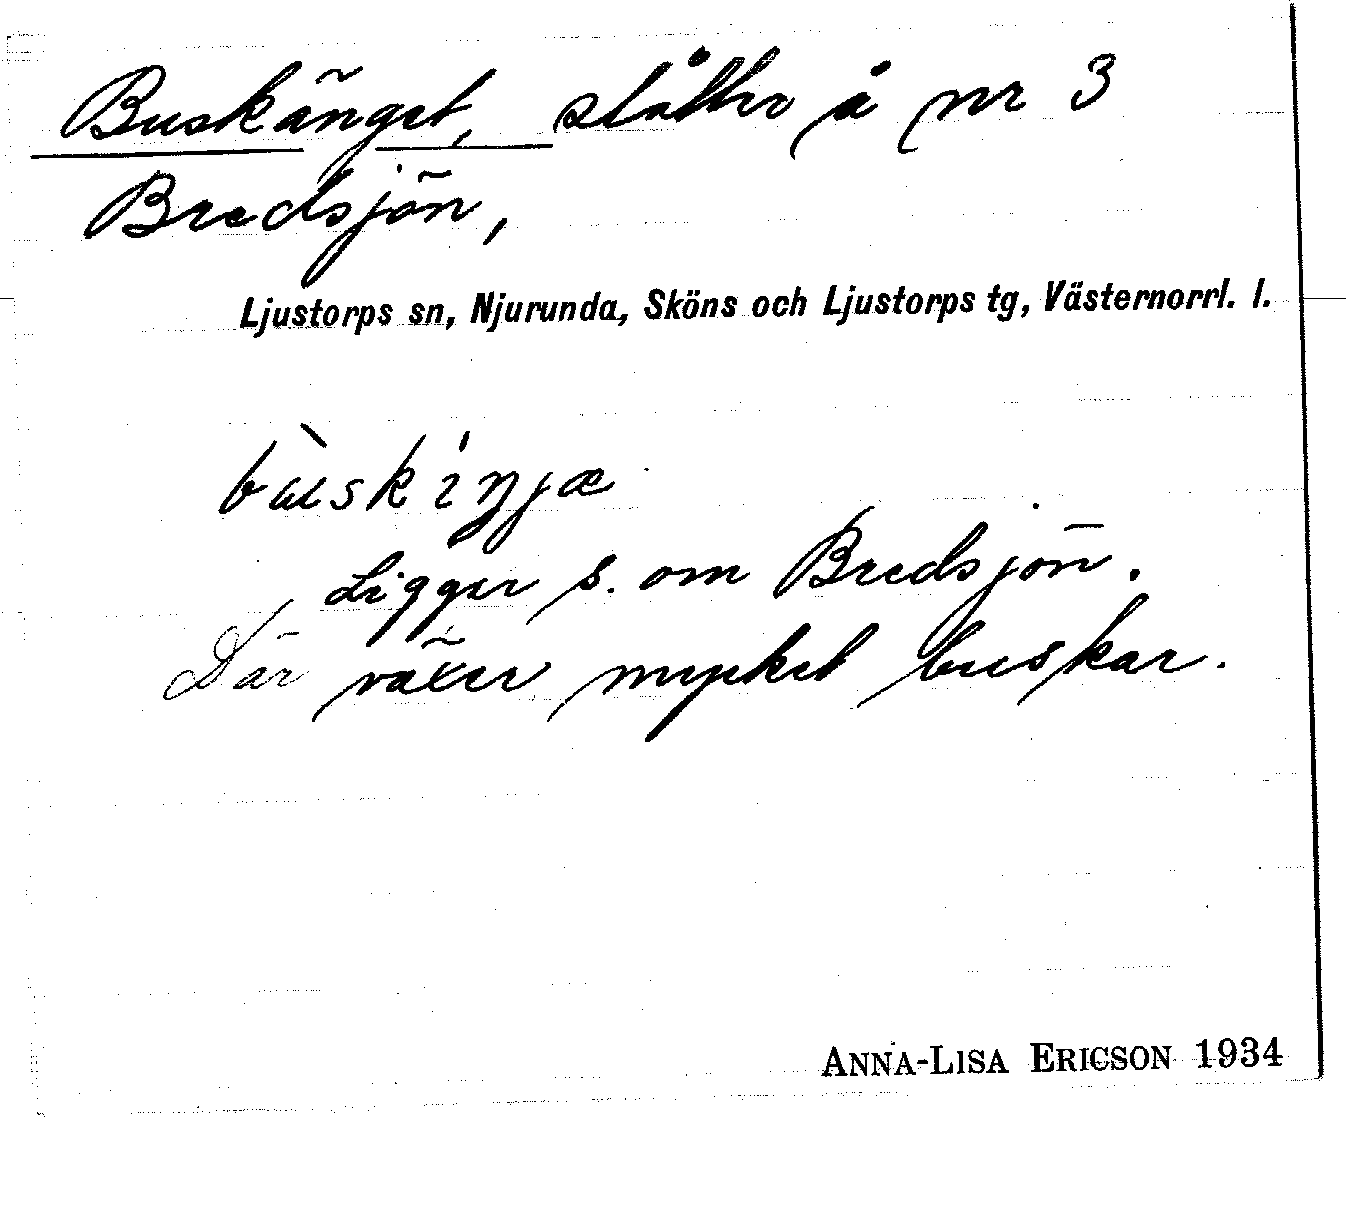 Buskänget, slåtter å nr 3
Bredsjön,
Ljustorps sn, Njurunda, Sköns och Ljustorps tg, Västernorrl. l.
Ligger s. om Bredsjön.
Där växer mycket buskar.
ANNA-LISA ERICSON 1934